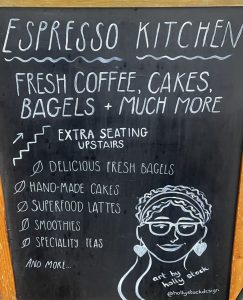 ESPRESSO KITCHEN
FRESH COFFEE, CAKES,
BAGELS + MUCH MORE
EXTRA SEATING
UPSTAIRS
DELICIOUS FRESH BAGELS
HAND-MADE CAKES
SUPERFOOD LATTES
SMOOTHIES
SPECIALITY TEAS
AND MORE...
art by
holly stock
@hollystockdesign